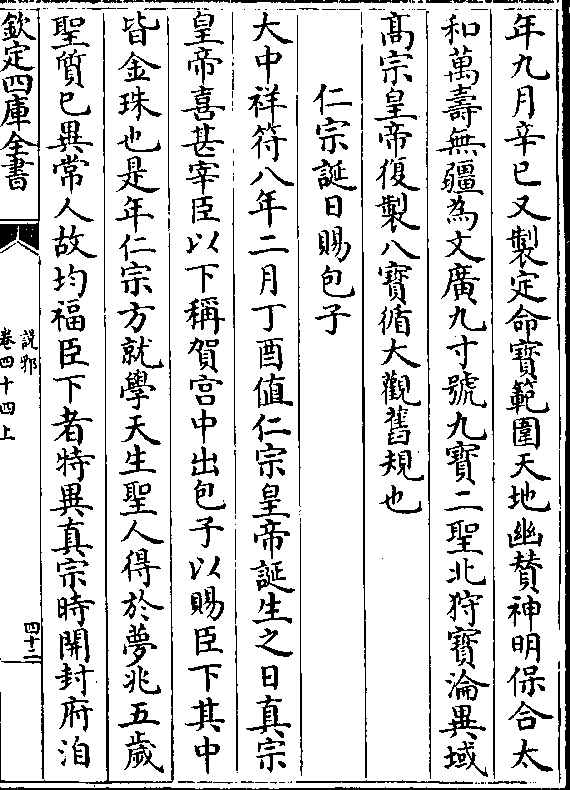 年九月辛巳又製定命寶範圍天地幽賛神明保合太
和萬壽無疆為文廣九寸號九寶二聖北狩寶淪異域
髙宗皇帝復製八寶循大觀舊規也
仁宗誕日賜包子
大中祥符八年二月丁酉值仁宗皇帝誕生之日真宗
皇帝喜甚宰臣以下稱賀宫中出包子以賜臣下其中
皆金珠也是年仁宗方就學天生聖人得於夢兆五歲
聖質已異常人故均福臣下者特異真宗時開封府洎
欽定四庫全書
說郛
卷四十四上
四十二